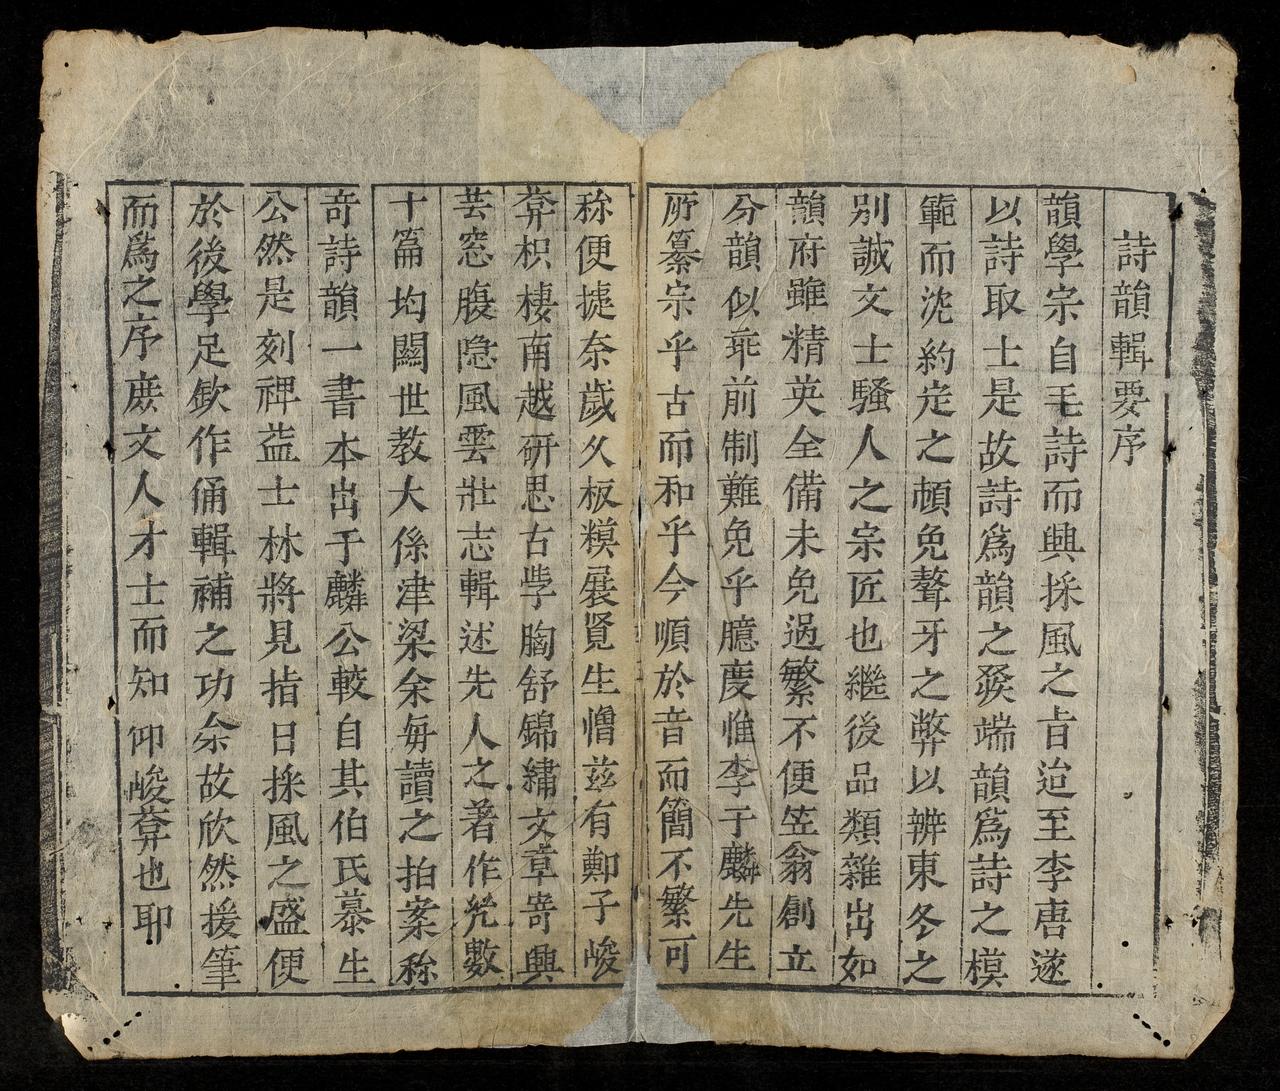 詩韻輯要序
韻學宗自毛詩而興採風之旨迨至李唐遂
以詩取士是故詩爲韻之發端韻爲詩之模
範而沈約定之頗免聱牙之弊以辨東冬之
別誠文士騷人之宗匠也繼後品類雜出如
韻府雖精英全備未免過繁不便笠翁創立
分韻似乖前制難免乎臆度惟李于麟先生
所纂宗乎古而和乎今順於音而簡不繁可
称便捷奈歲久板糢展覽生憎茲有鄭子峻
莽枳棲南越研思古學胸舒錦繡文章寄興
芸窓腹隐風雲壯志輯述先人之著作凢數
十篇均關世教大係津梁余每讀之拍案称
竒詩韻一書本出于麟公較自其伯氏慕生
公然是刻裨益士林將見指日採風之盛便
於後學足欽作俑輯補之功余故欣然援筆
而爲之序庶文人才士而知仰峻莽也耶